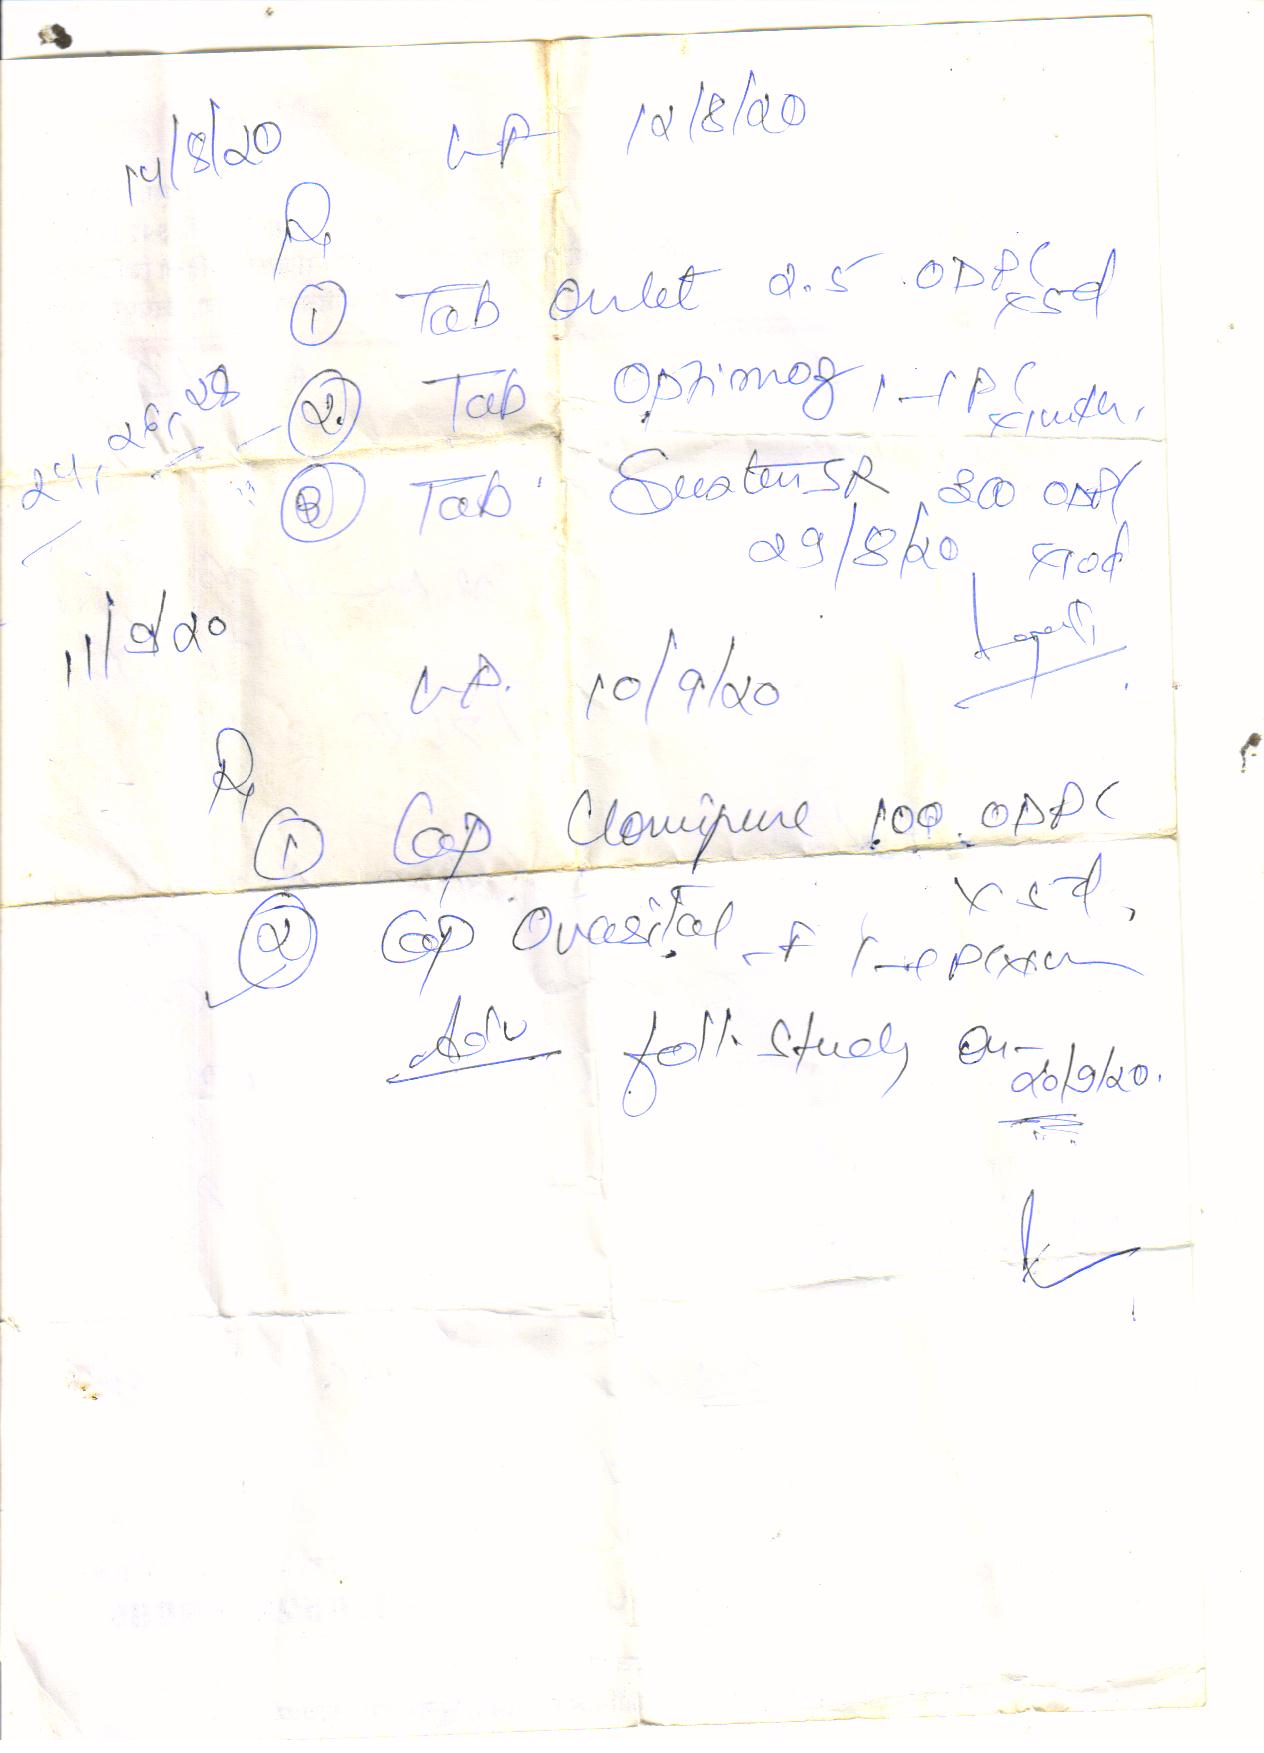 14/8/20 LMP 12/8/20
Rx
① Tab Ovulet 2.5 ODPC x5d
24, 26, 28
② Tab Optimog 1-1 PC
③ Tab SR 300 ODPC
29/8/20 x10d
11/9/20
LMP. 10/9/20
Rx
① Cap Clomipure 100. ODPC
x5d,
② Cap Ovasital-F 1-1 PC
Adv foll. study on
20/9/20.